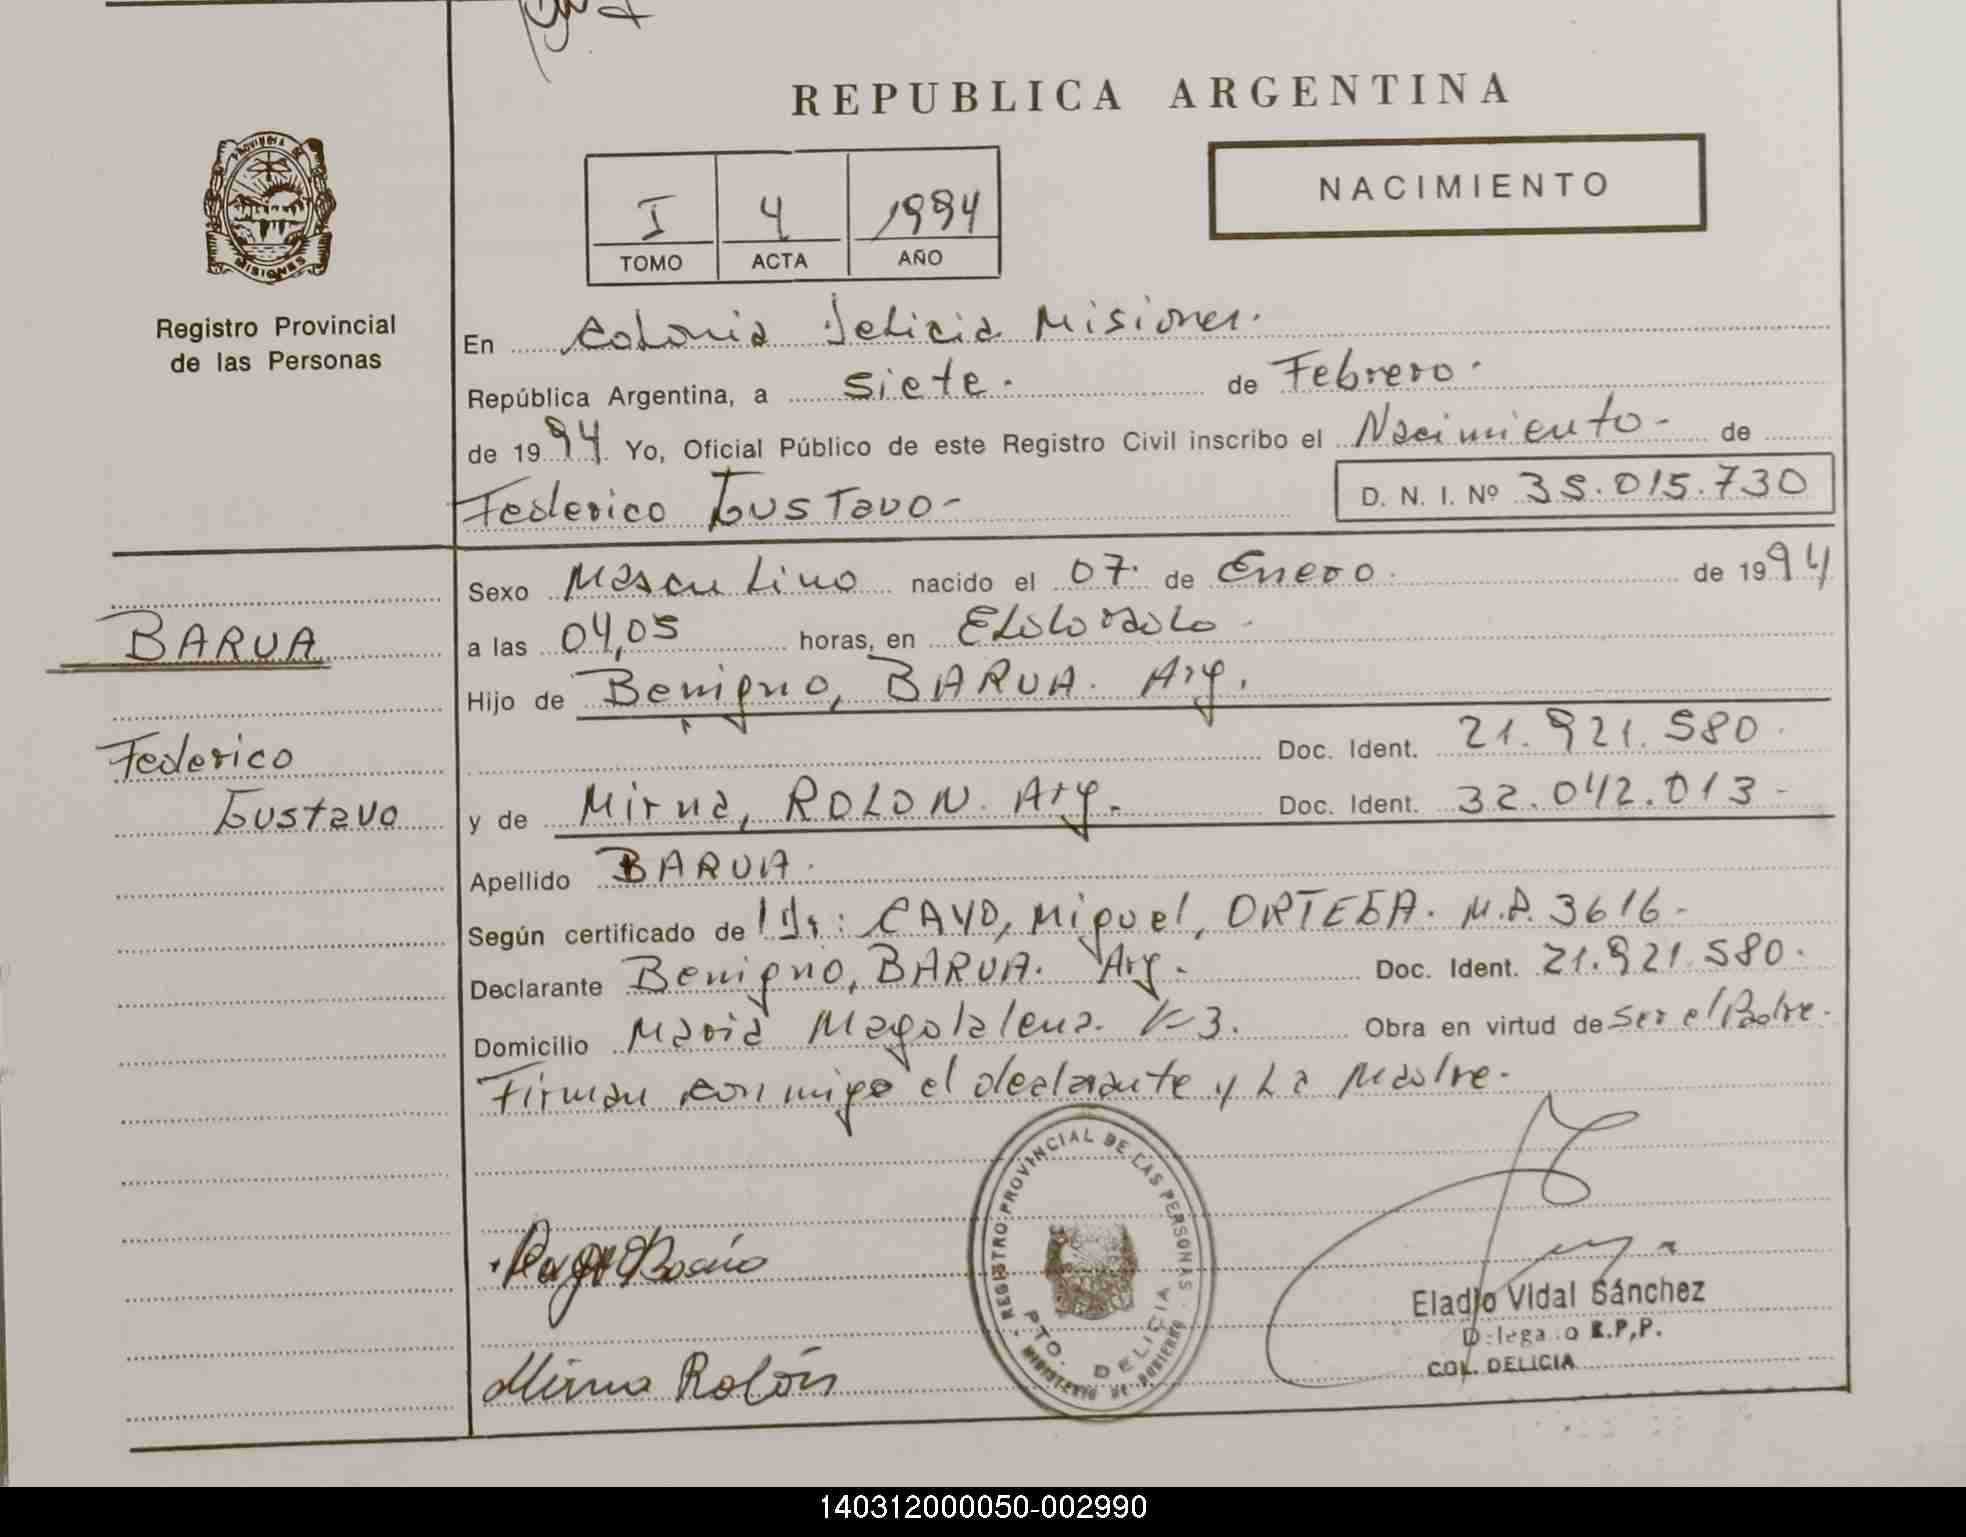 REPUBLICA ARGENTINA
PROVINCIA DE
MISIONES
Registro Provincial
de las Personas
I 4 1994
TOMO ACTA AÑO
NACIMIENTO
En Colonia Delicia Misiones.
República Argentina, a siete. de Febrero.
de 1994. Yo, Oficial Público de este Registro Civil inscribo el Nacimiento- de
Federico Gustavo-
D. N. I. Nº 35.015.730
BARUA
Federico
Gustavo
Sexo Masculino nacido el 07. de Enero. de 1994
a las 04,05 horas, en Eldorado-
Hijo de Benigno, BARUA. Arg.
Doc. Ident. 21.921.580.
y de Mirna, ROLON. Arg. Doc. Ident. 32.042.013-
Apellido BARUA.
Según certificado de Dr: CAYO, Miguel, ORTEGA. M.P. 3616-
Declarante Benigno, BARUA. Arg. Doc. Ident. 21.921.580.
Domicilio Maria Magdalena. K-3. Obra en virtud de Ser el Padre.
Firman conmigo el declarante y La Madre.
REGISTRO PROVINCIAL DE LAS PERSONAS
PTO. DELICIA
MINISTERIO DE GOBIERNO
Mirna Rolón
Eladio Vidal Sánchez
Delegado R.P.P.
COL. DELICIA
140312000050-002990